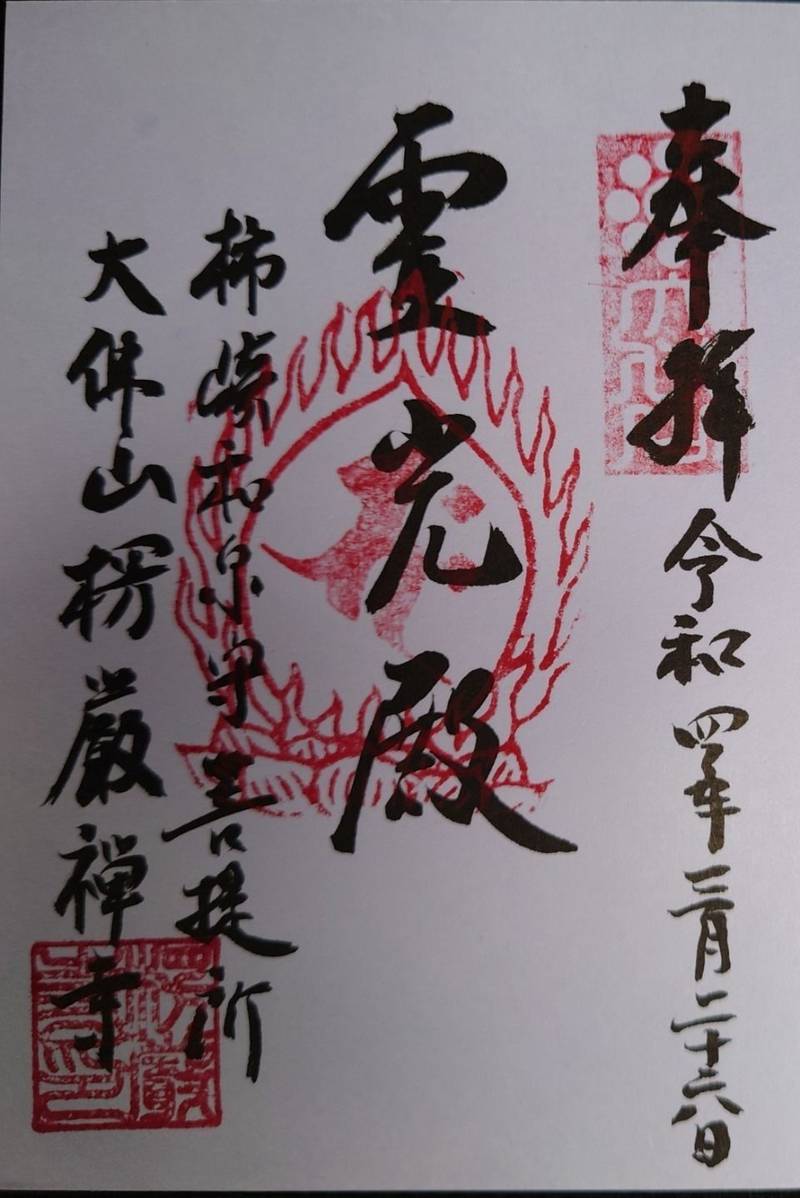 奉拝
令和四年三月二十六日
霊光殿
柿崎和泉守菩提所
大佛山楞厳禅寺